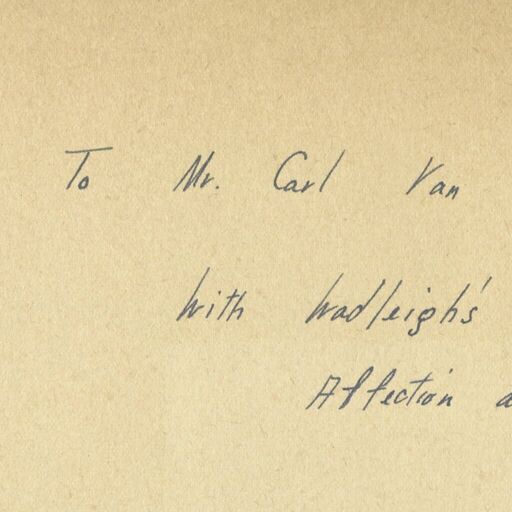 To Mr. Carl Van
With Wadleigh's
Affection a